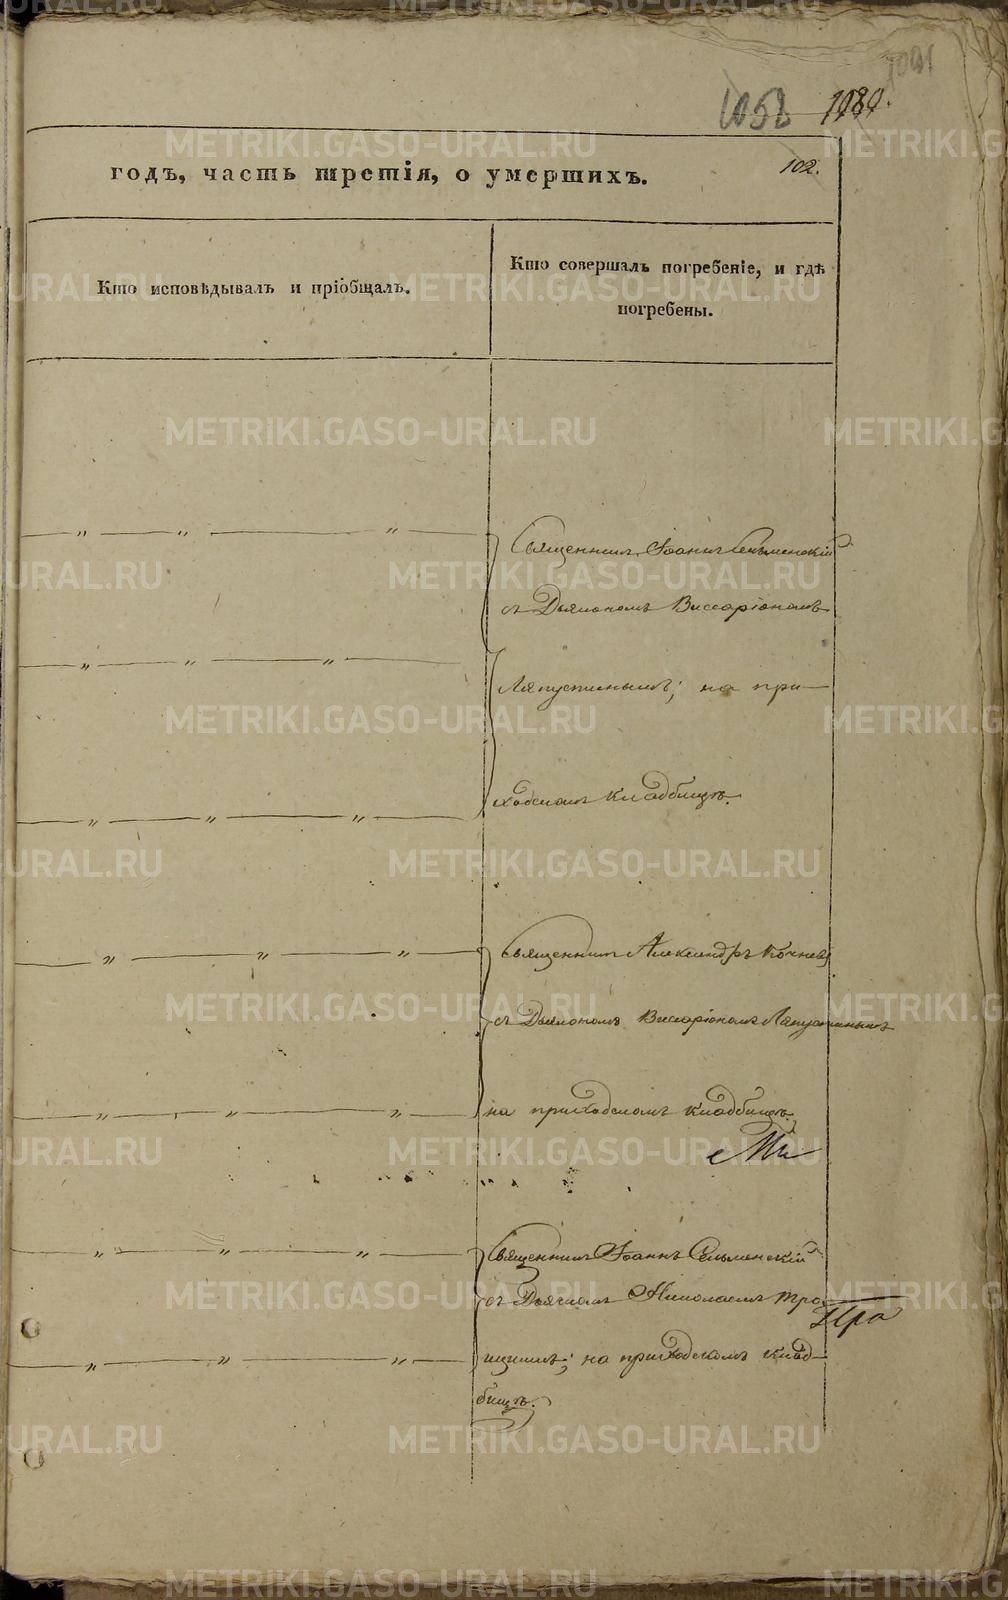 1058 1080.
годъ, часть третія, о умершихъ.
102.
Кто исповѣдывалъ и пріобщалъ.
Кто совершалъ погребеніе, и гдѣ
погребены.
Священникъ Іоаннъ Сельменскій
съ Дьякономъ Виссаріономъ
Ляпустинымъ; на при-
ходскомъ кладбищѣ.
Священникъ Александръ Кочневъ
съ Дьякономъ Виссаріономъ Ляпустинымъ
на приходскомъ кладбищѣ.
Священникъ Іоаннъ Сельменскій
съ Дьячкомъ Николаемъ Тро-
ицкимъ; на приходскомъ клад-
бищѣ.
METRIKI.GASO-URAL.RU